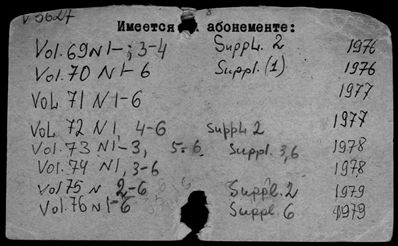 V 3627
Имеется в абонементе:
Vol. 69 N 1-; 3-4 Suppl. 2 1976
Vol. 70 N 1-6 Suppl. (1) 1976
Vol. 71 N 1-6 1977
Vol. 72 N 1, 4-6 Suppl. 2 1977
Vol. 73 N 1-3, 5-6 Suppl. 3,6 1978
Vol. 74 N 1, 3-6 1978
Vol 75 N 2-6 Suppl. 2 1979
Vol. 76 N 1-6 Suppl. 6 1979